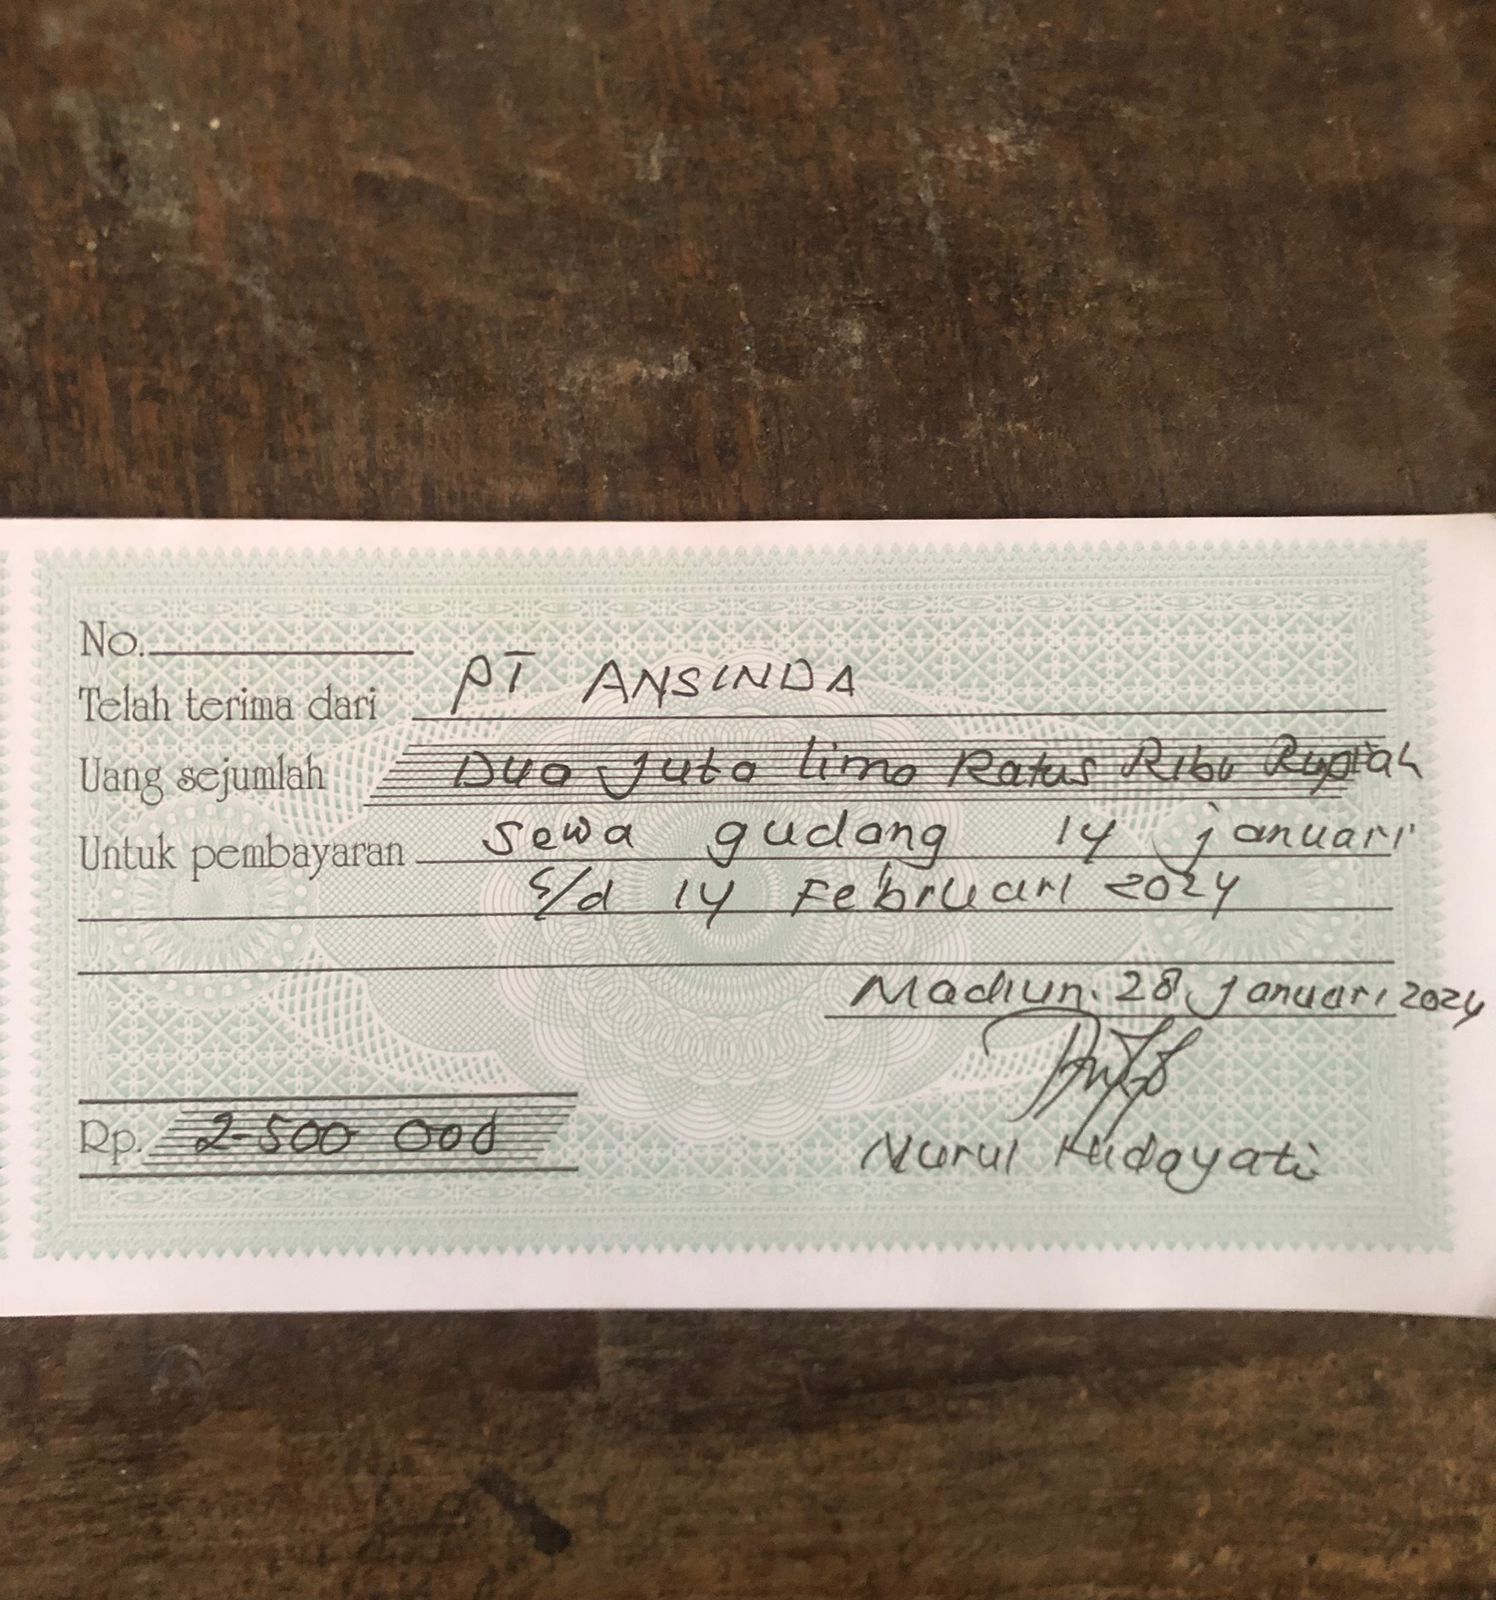 No.
Telah terima dari PT ANSINDA
Uang sejumlah Dua Juta lima Ratus Ribu Rupiah
Untuk pembayaran Sewa gudang 14 januari
s/d 14 Februari 2024
Madiun. 28 Januari 2024
Rp. 2.500 000
Nurul Hidayati